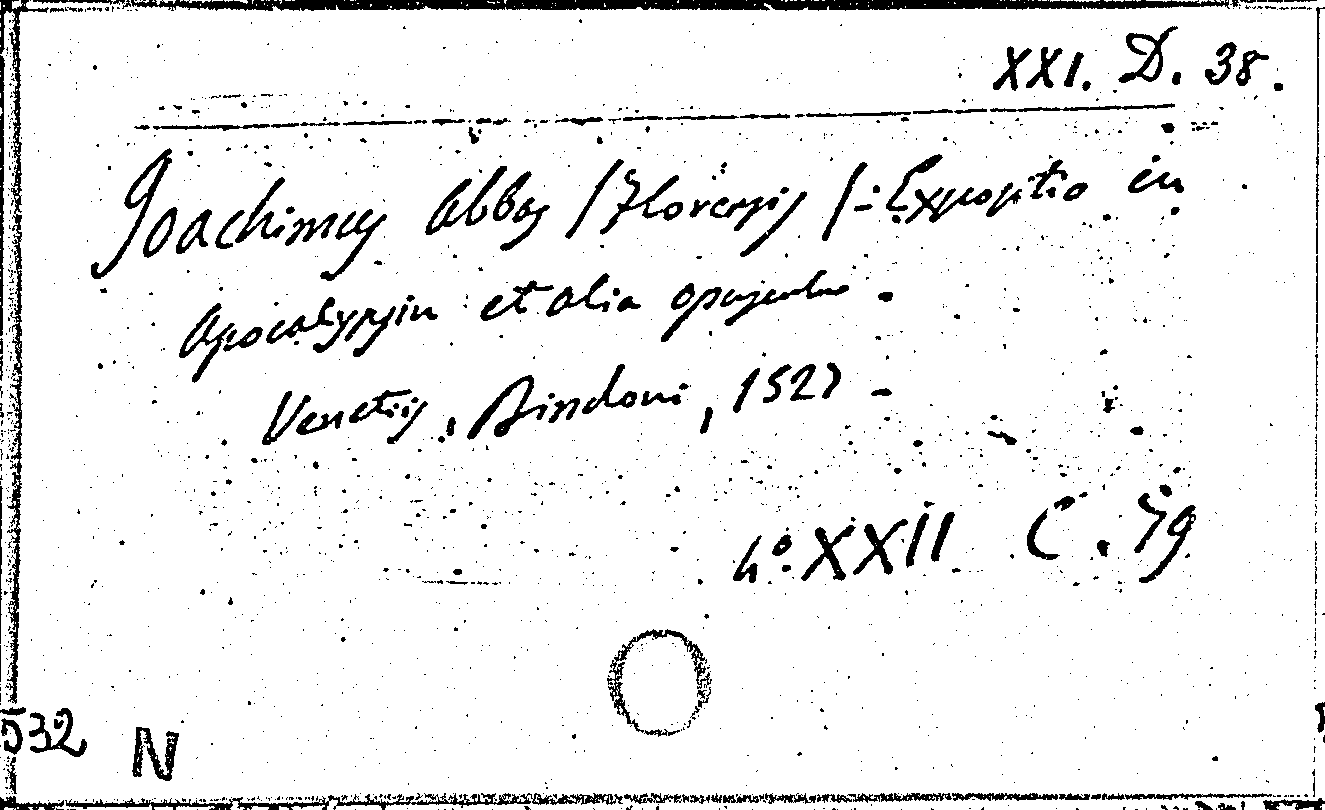 XXI. D. 38.
Joachimus Abbas / Florensis /-: Expositio in
Apocalypsin et alia opuscula.
Venetiis, Bindoni, 1527 -
4° XXII C. 59
532 N